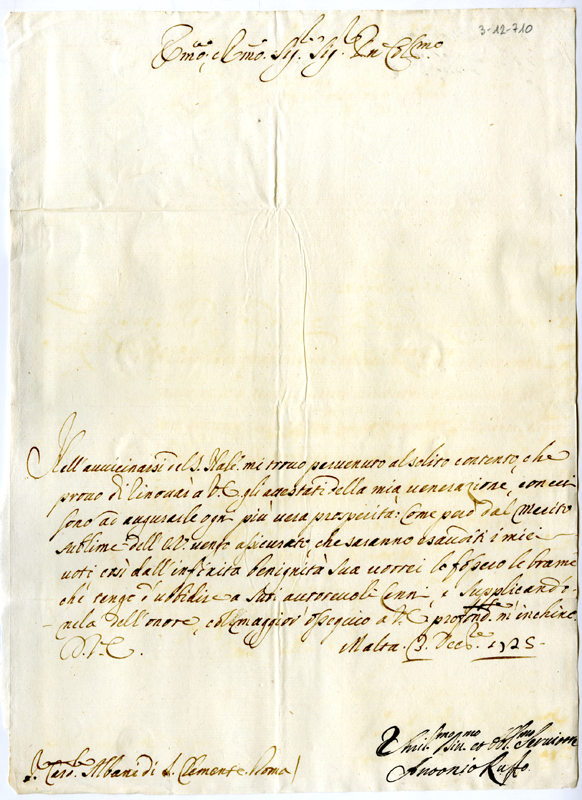 3-12-710
Emo., e Rmo. Sig.r Sig.r Pne Colmo
Nell'avvicinarsi del S. Nale. mi trovo pervenuto al solito contento, che
provo di rinovar à V.E. gli attestati della mia venerazione, con cui
sono ad augurarle ogni più vera prosperità: Come però dal Merito
sublime dell'E.V. vengo assicurato, che saranno esauditi i miei
voti così dall'infinita benignità Sua vorrei lo fossero le brame
che tengo d'ubbidire a Suoi autorevoli Cenni, e Supplicando-
-nela dell'onore, col maggior ossequio a V.E. profond.te m'inchino.
D.V.E.
Malta. 3. Decb.re 1725.
S.r Card.le Albani di S. Clemente. Roma
Umil.mo Div.mo et Obl.mo Servitore
Antonio Ruffo.